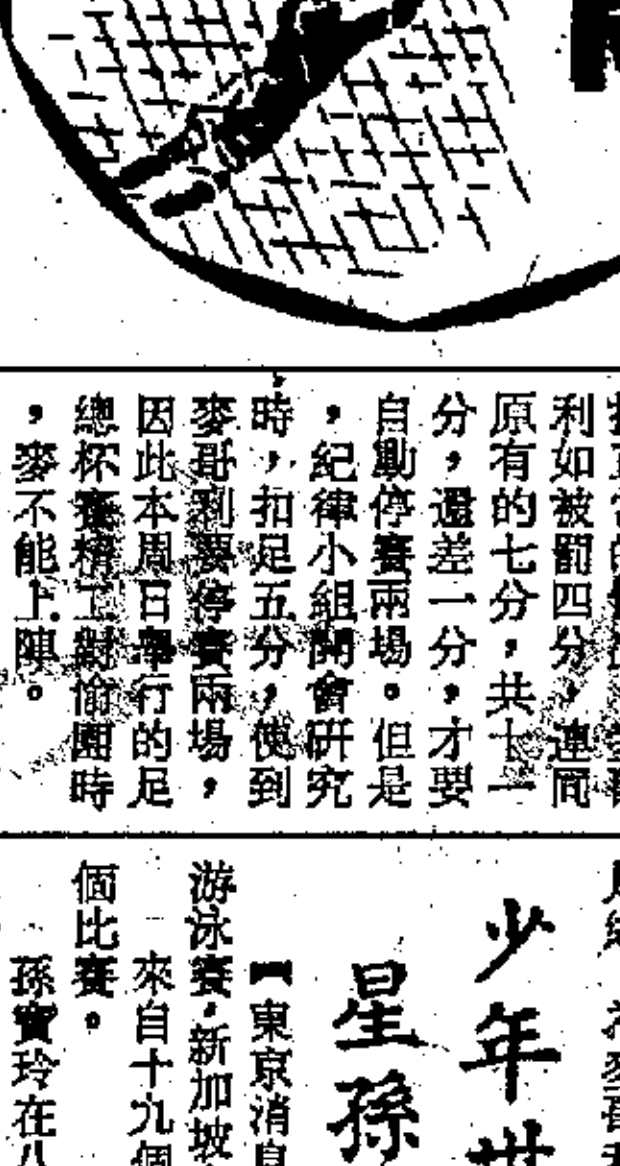 利如被罰四分，連同
原有的七分，共十一
分，還差一分，才要
自動停賽兩場。但是
，紀律小組開會研究
時，扣足五分，使到
麥哥利要停賽兩場，
因此本周日舉行的足
總杯賽精工對愉園時
，麥不能上陣。
少年世
星孫
【東京消息
游泳賽，新加坡
來自十九個
個比賽。
孫寶玲在八